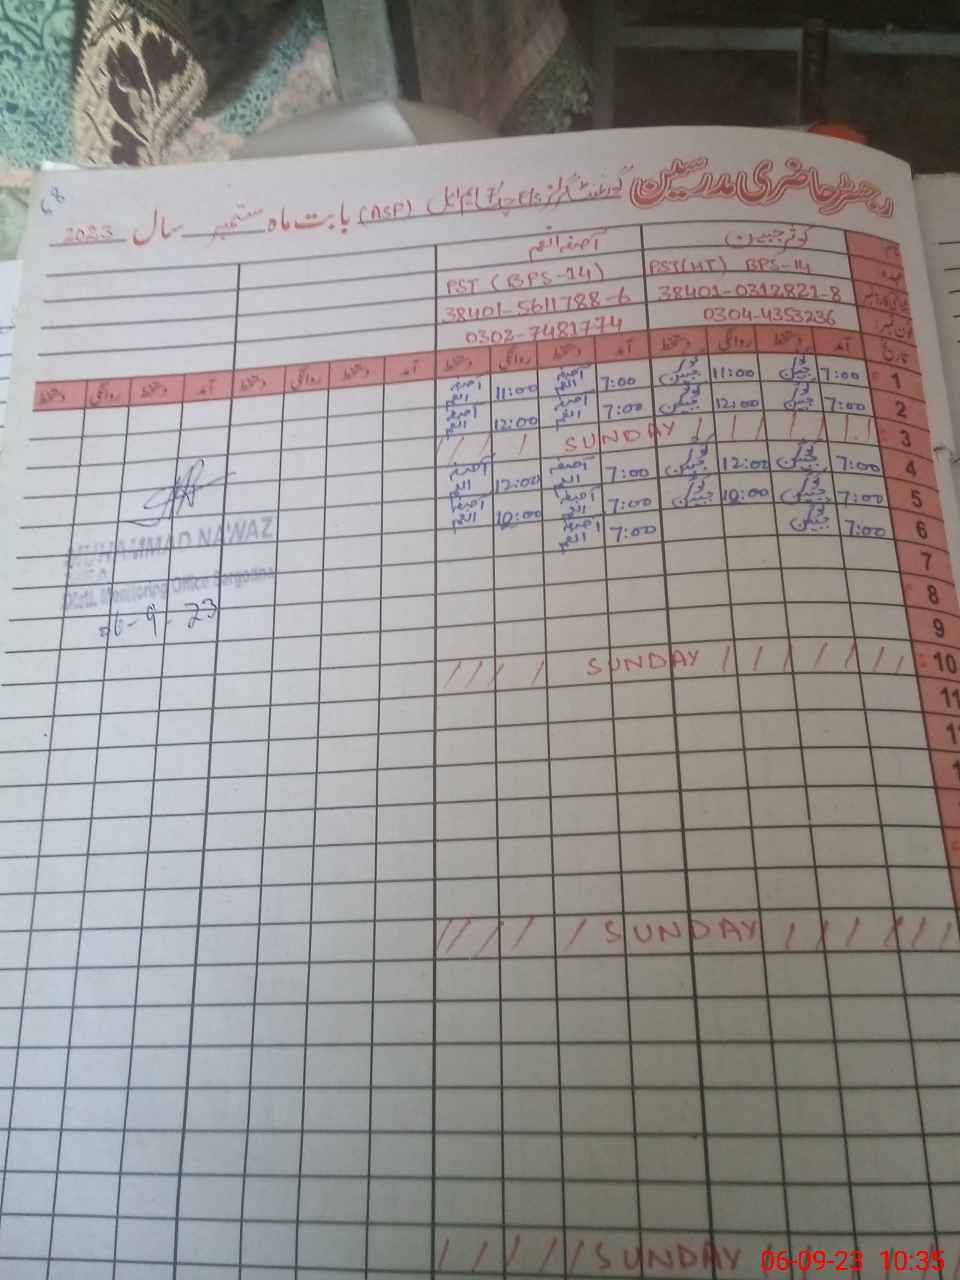 68
رجسٹر حاضری مدرسین گورنمنٹ گرلز Els چک 7 ایم ایل (ASP) بابت ماہ ستمبر سال 2023
نام کوثر جبین آصفہ انعم
عہدہ PST(HT) BPS-14 PST (BPS-14)
38401-0312821-8 38401-5611788-6
فون نمبر: 0304-4353236 0302-7481774
تاریخ آمد دستخط روانگی دستخط آمد دستخط روانگی دستخط آمد دستخط روانگی دستخط آمد دستخط روانگی دستخط
1 7:00 کوثر جبین 11:00 کوثر جبین 7:00 آصفہ انعم 11:00 آصفہ انعم
2 7:00 کوثر جبین 12:00 کوثر جبین 7:00 آصفہ انعم 12:00 آصفہ انعم
3 SUNDAY
4 7:00 کوثر جبین 12:00 کوثر جبین 7:00 آصفہ انعم 12:00 آصفہ انعم
5 7:00 کوثر جبین 10:00 کوثر جبین 7:00 آصفہ انعم 10:00 آصفہ انعم
6 7:00 کوثر جبین 7:00 آصفہ انعم
MUHAMMAD NAWAZ
Distt. Monitoring Office Sargodha
06-9-23
7
8
9
10 SUNDAY
11
SUNDAY
SUNDAY
06-09-23 10:35